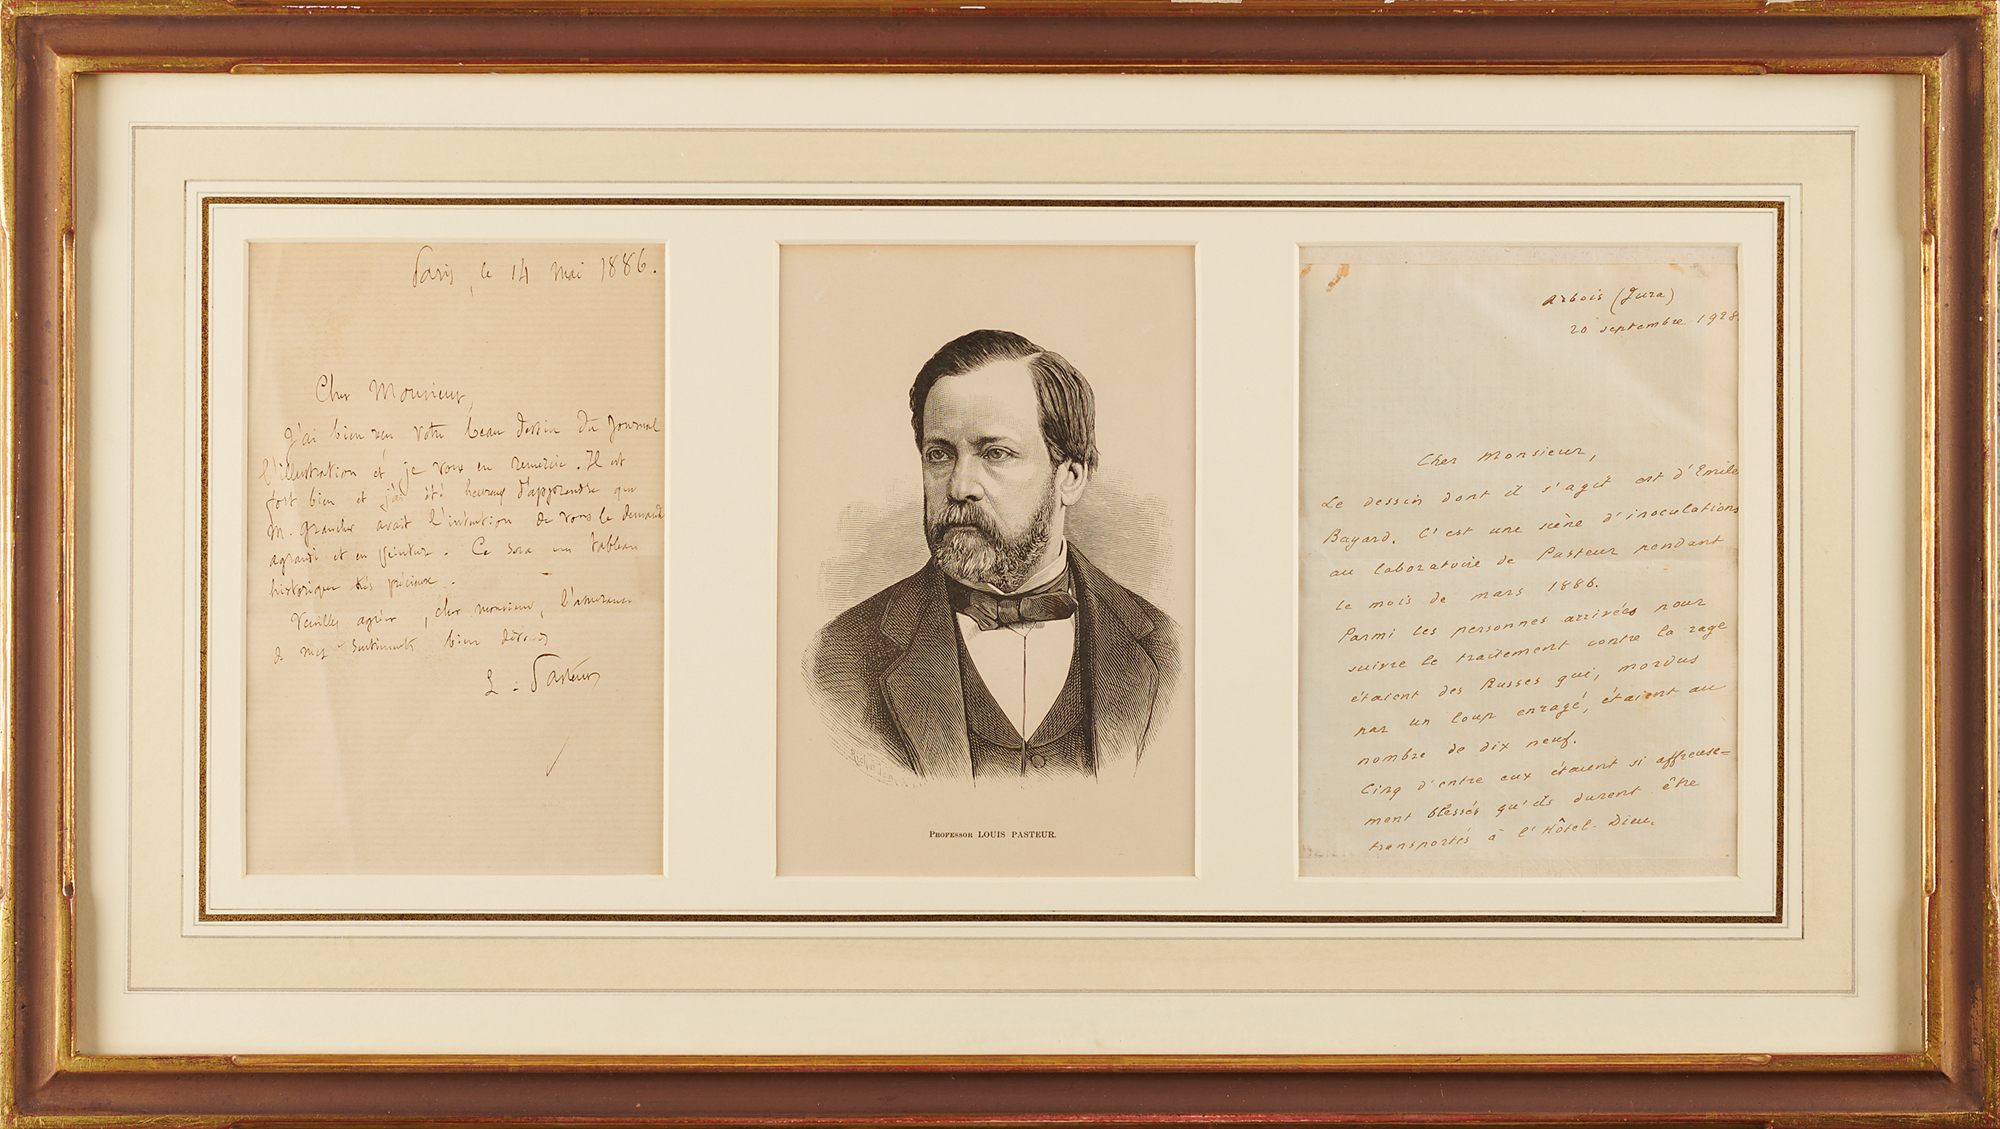 Paris, le 14 mai 1886.
Cher Monsieur,
J'ai bien reçu votre beau dessin du journal
l'illustration et je vous en remercie. Il est
fort bien et j'ai été heureux d'apprendre que
M. Grancher avait l'intention de vous le demander
agrandi et en peinture. Ce sera un tableau
historique très précieux.
Veuillez agréer, cher monsieur, l'assurance
de mes sentiments bien dévoués
L. Pasteur
Professor LOUIS PASTEUR.
Arbois (Jura)
20 septembre 1928.
Cher Monsieur,
Le dessin dont il s'agit est d'Emile
Bayard. C'est une scène d'inoculations
au laboratoire de Pasteur pendant
le mois de mars 1886.
Parmi les personnes arrivées pour
suivre le traitement contre la rage
étaient des Russes qui, mordus
par un loup enragé, étaient au
nombre de dix neuf.
Cinq d'entre eux étaient si affreuse=
ment blessés qu'ils durent être
transportés à l'Hôtel-Dieu.